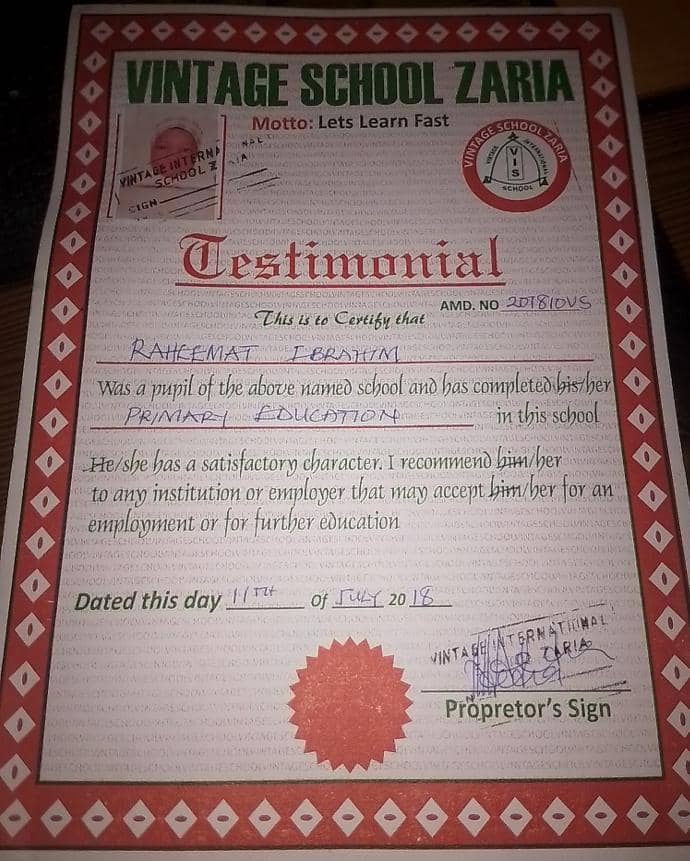 VINTAGE SCHOOL ZARIA
Motto: Lets Learn Fast
VINTAGE INTERNA
SCHOOL Z
SIGN
VINTAGE SCHOOL ZARIA
VINTAGE
V
I
S
INTERNATIONAL
SCHOOL
Testimonial
AMD. NO 201810VS
This is to Certify that
RAHEEMAT IBRAHIM
Was a pupil of the above named school and has completed his/her
PRIMARY EDUCATION in this school
He/she has a satisfactory character. I recommend him/her
to any institution or employer that may accept him/her for an
employment or for further education
Dated this day 11TH of JULY 2018
VINTAGE INTERNATIONAL
ZARIA
Propretor's Sign